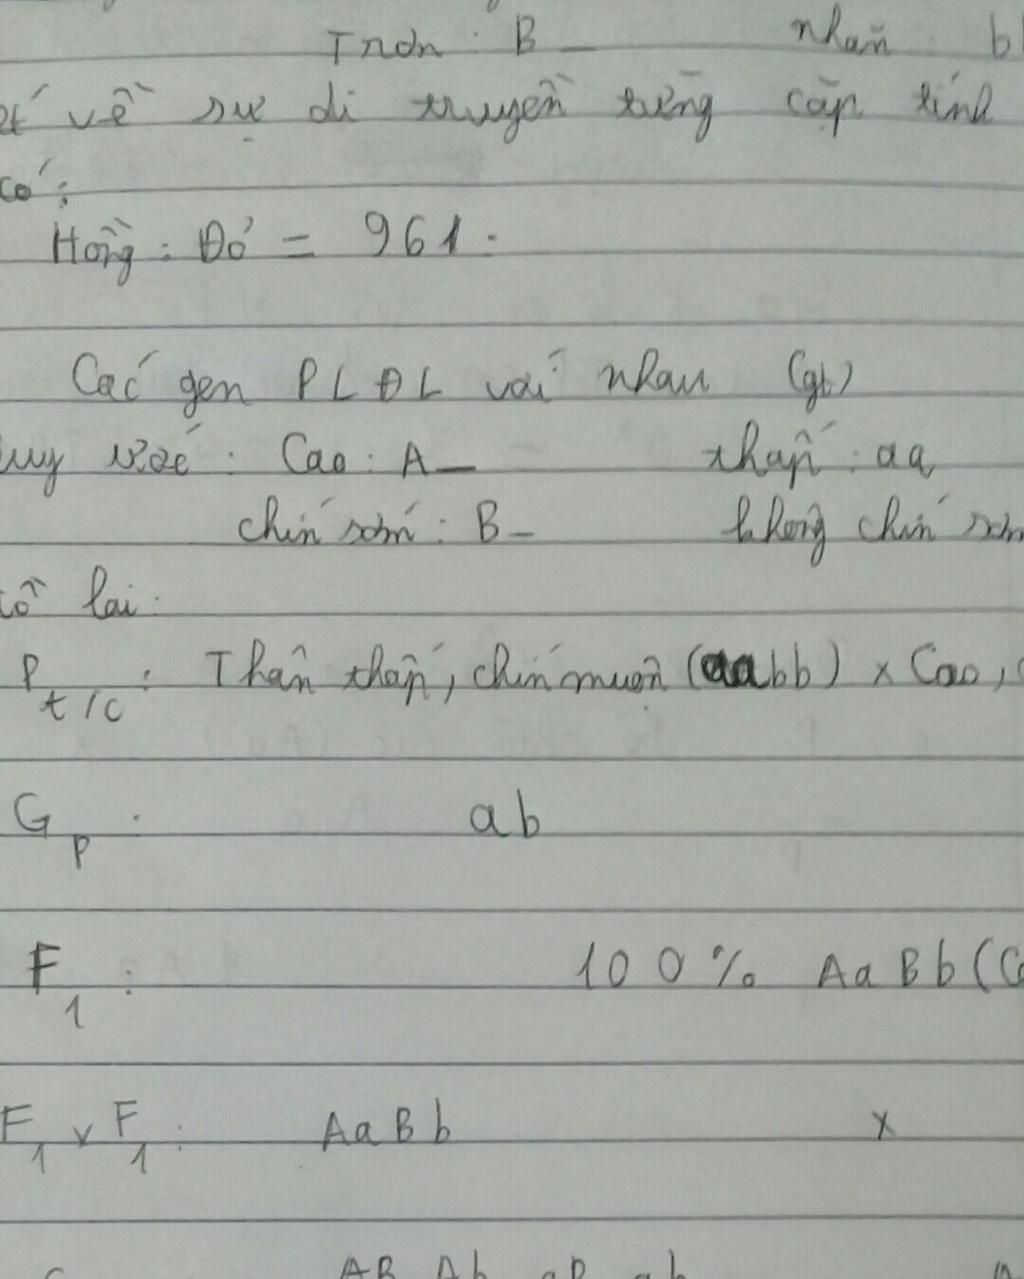 Trơn : B_ nhăn b
ét về sự di truyền từng cặp tính
có :
Hồng : Đỏ = 961 :
Các gen PLĐL với nhau (gt)
uy ước : Cao : A_ thấp : aa
chín sớm : B_ không chín sớm
lai :
P t/c : Thân thấp, chín muộn (aabb) x Cao,
G P : ab
F 1 : 100% AaBb (C
F1 x F1 : AaBb x
AB Ab aB ab